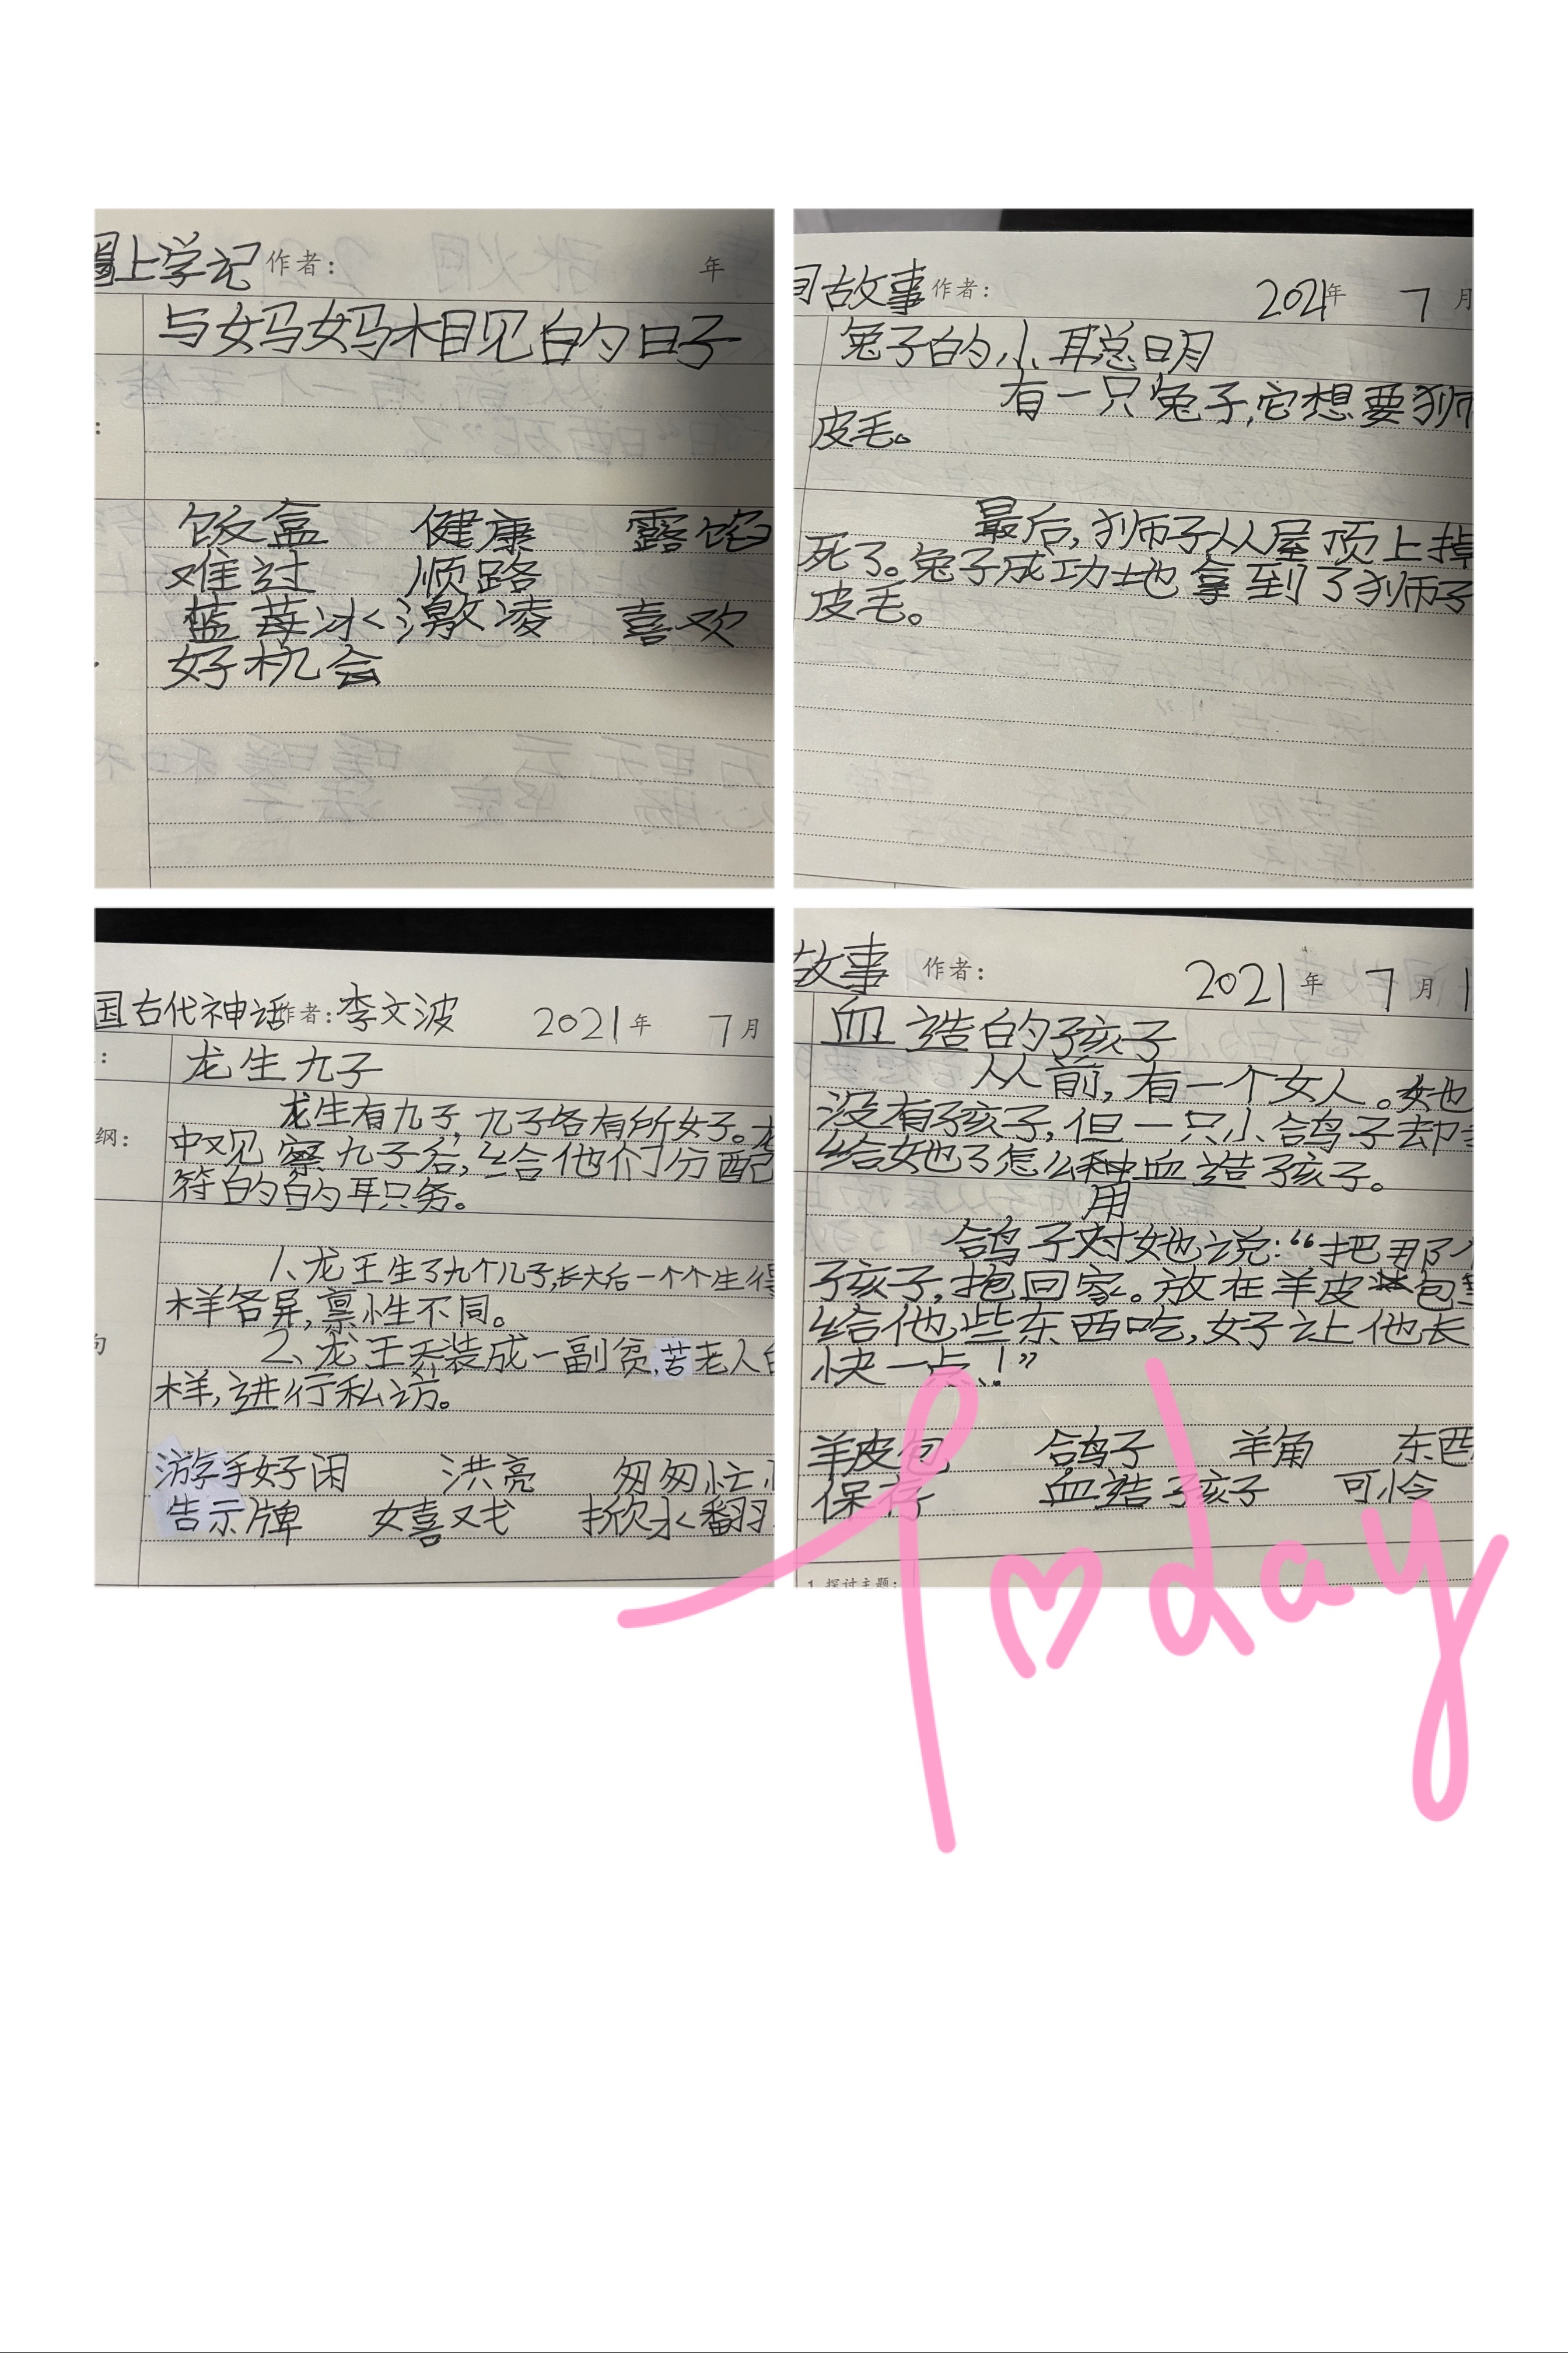 上学记 作者: 年
与妈妈相见的日子
饭盒 健康 露馅
难过 顺路
蓝莓冰激凌 喜欢
好机会
故事 作者: 2021年 7月
兔子的小聪明
有一只兔子,它想要狮
皮毛。
最后,狮子从屋顶上掉
死了。兔子成功地拿到了狮子
皮毛。
国古代神话 作者:李文波 2021年 7月
龙生九子
龙生有九子,九子各有所好。龙
纲: 中观察九子后,给他们分配
符的的职务。
1、龙王生了九个儿子,长大后一个个生得
样各异,禀性不同。
2、龙王乔装成一副贫苦老人
样,进行私访。
游手好闲 洪亮 匆匆忙
告示牌 嬉戏 掀水翻
故事 作者: 2021年 7月1
血造的孩子
从前,有一个女人。她
没有孩子,但一只小鸽子却
给她了怎么种血造孩子。
用
鸽子对她说:“把那个
孩子,抱回家。放在羊皮包
给他些东西吃,好让他长
快一点!”
羊皮包 鸽子 羊角 东西
保存 血造孩子 可怜
1.探讨主题:
Today